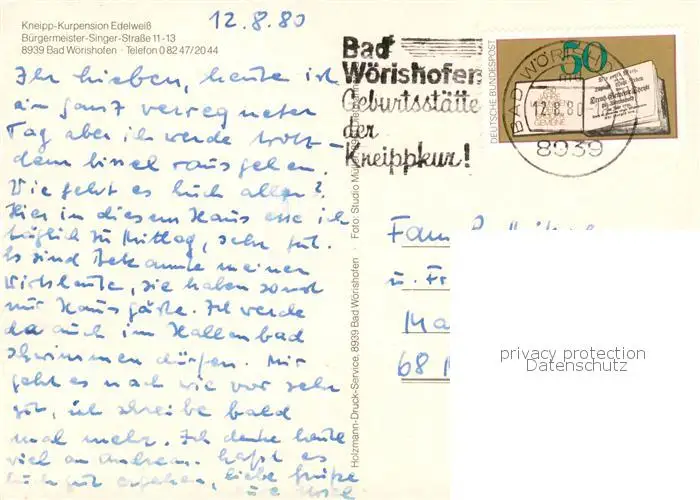 12.8.80
Kneipp-Kurpension Edelweiß
Bürgermeister-Singer-Straße 11-13
8939 Bad Wörishofen · Telefon 0 82 47/20 44
Ihr Lieben, heute ist
ein ganz verregneter
Tag aber ich werde trotz-
dem bissel rausgehen.
Wie geht es Euch allen?
Hier in diesem Haus esse ich
täglich zu Mittag, sehr gut.
Es sind Bekannte meiner
Wirtsleute, sie haben sonst
nur Hausgäste. Ich werde
da auch im Hallenbad
schwimmen dürfen. Mir
geht es nach wie vor sehr
gut, ich schreibe bald
mal mehr. Ich denke heute
viel an Andreas. Laßt es
Euch gut ergehen, liebe Grüße
Eure
Bad
Wörishofen
Geburtsstätte
der
Kneippkur!
DEUTSCHE BUNDESPOST
50
BAD WÖRISH
12.8.80
8939
Holzmann-Druck-Service, 8939 Bad Wörishofen · Foto: Studio
Fam.
u. Fr
Ma
68 M
privacy protection
Datenschutz